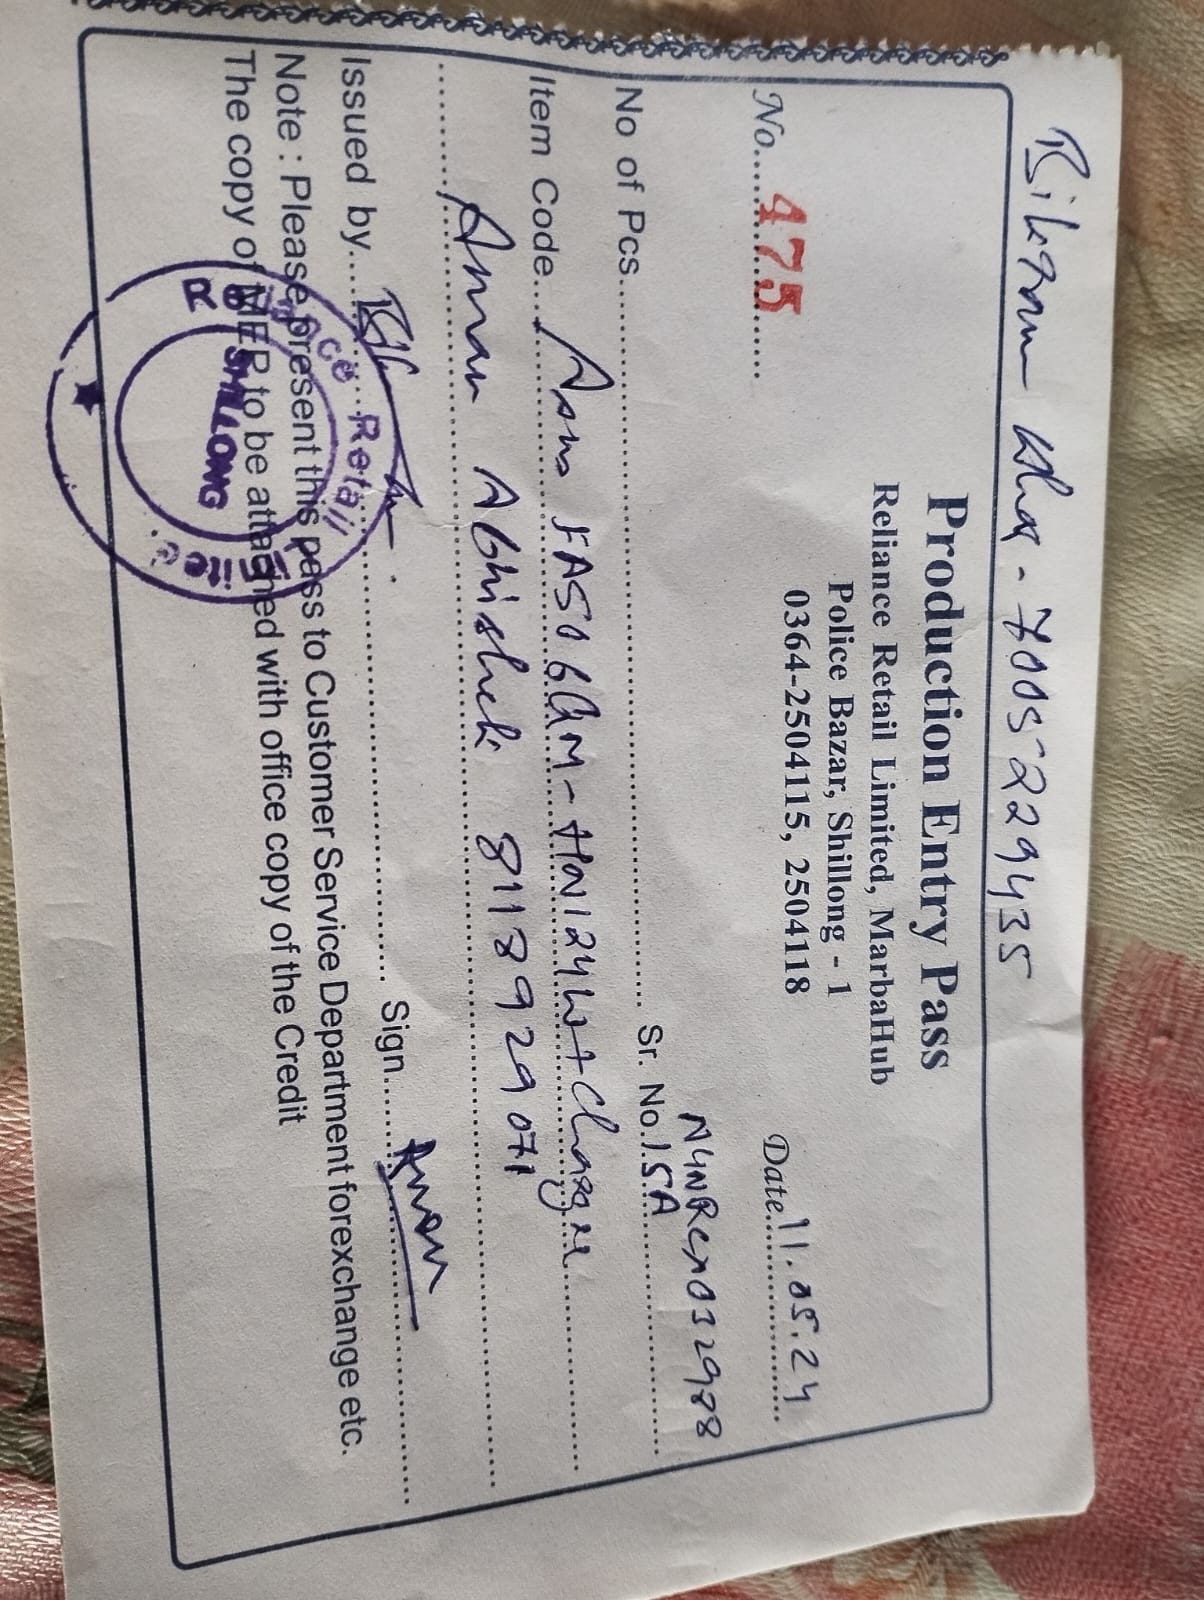 Bikram Dhar - 7005229435
Production Entry Pass
Reliance Retail Limited, MarbaHub
Police Bazar, Shillong - 1
0364-2504115, 2504118
No. 475 Date 11.05.24
No of Pcs. Sr. No.
15A
Item Code Asus FA506QM-HN124W + Charger
Aman Abhishek 8118929071
Issued by Sign Aman
Note : Please present this pass to Customer Service Department forexchange etc.
The copy of MEP to be attached with office copy of the Credit
Reliance Retail Limited
SHILLONG